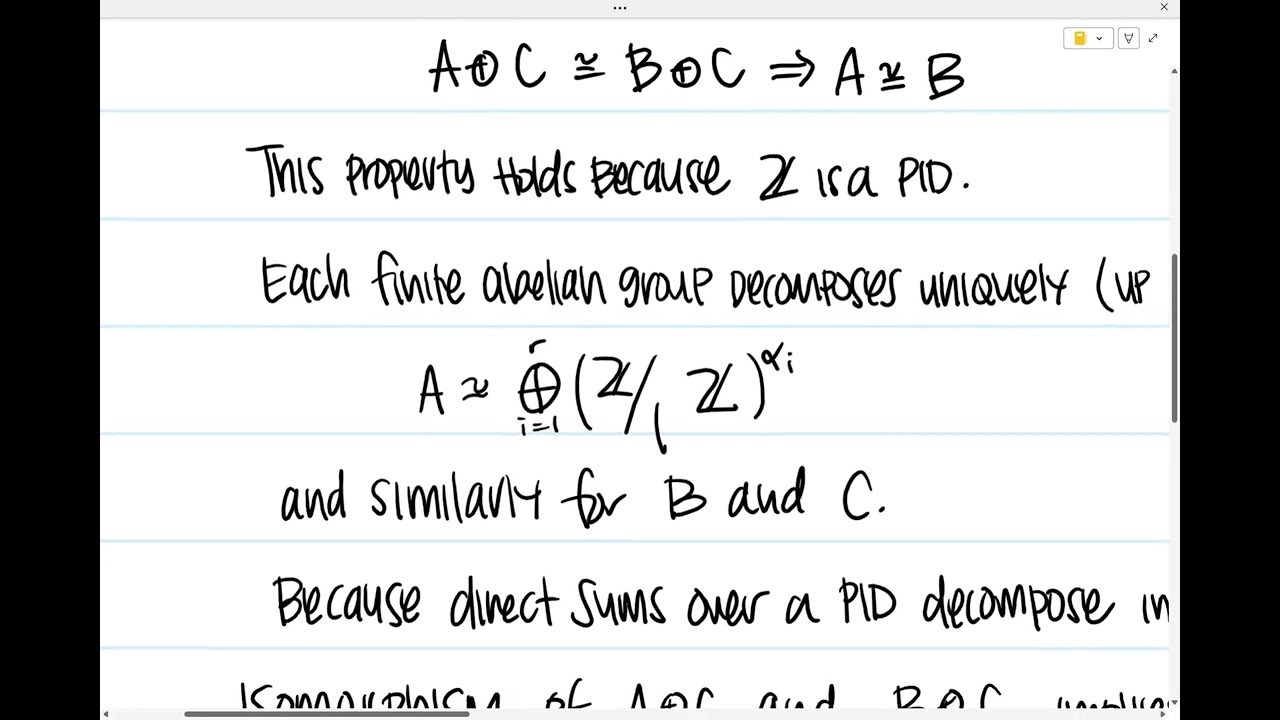 A⊕C ≅ B⊕C ⇒ A ≅ B
This property Holds Because ℤ is a PID.
Each finite abaelian group Decomposes uniquely (up
r
A ≈ ⊕ (ℤ/ ℤ)^αi
i=1
and similarly for B and C.
Because direct sums over a PID decompose in
Isomorphism of A⊕C and B⊕C